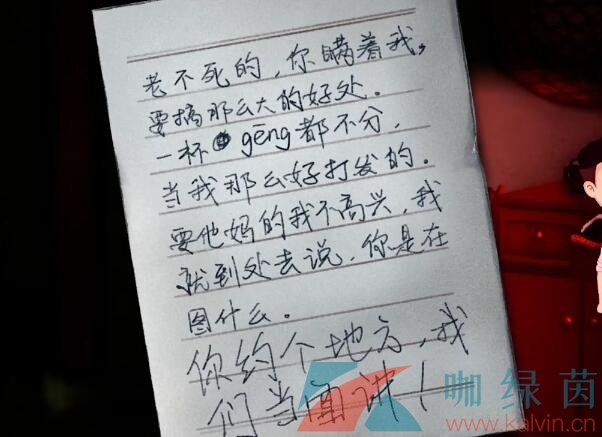 老不死的，你瞒着我，
要搞那么大的好处.
一杯 gēng都不分，
当我那么好打发的.
要他妈的我不高兴，我
就到处去说，你是在
图什么。
你约个地方，我
们当面讲！
咖绿茵
www.kalvin.cn